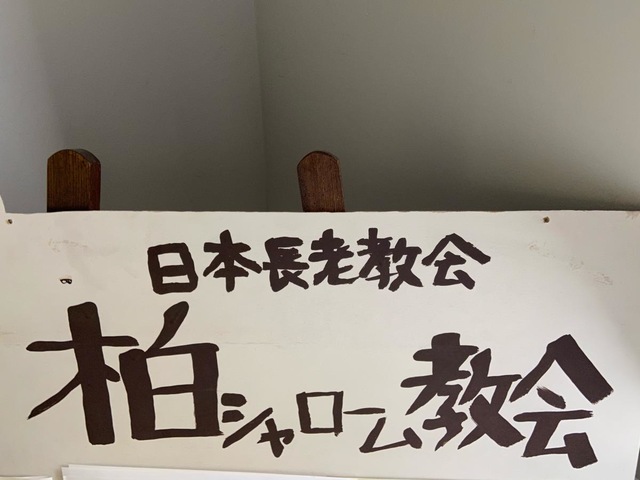 日本長老教会
柏シャローム教会